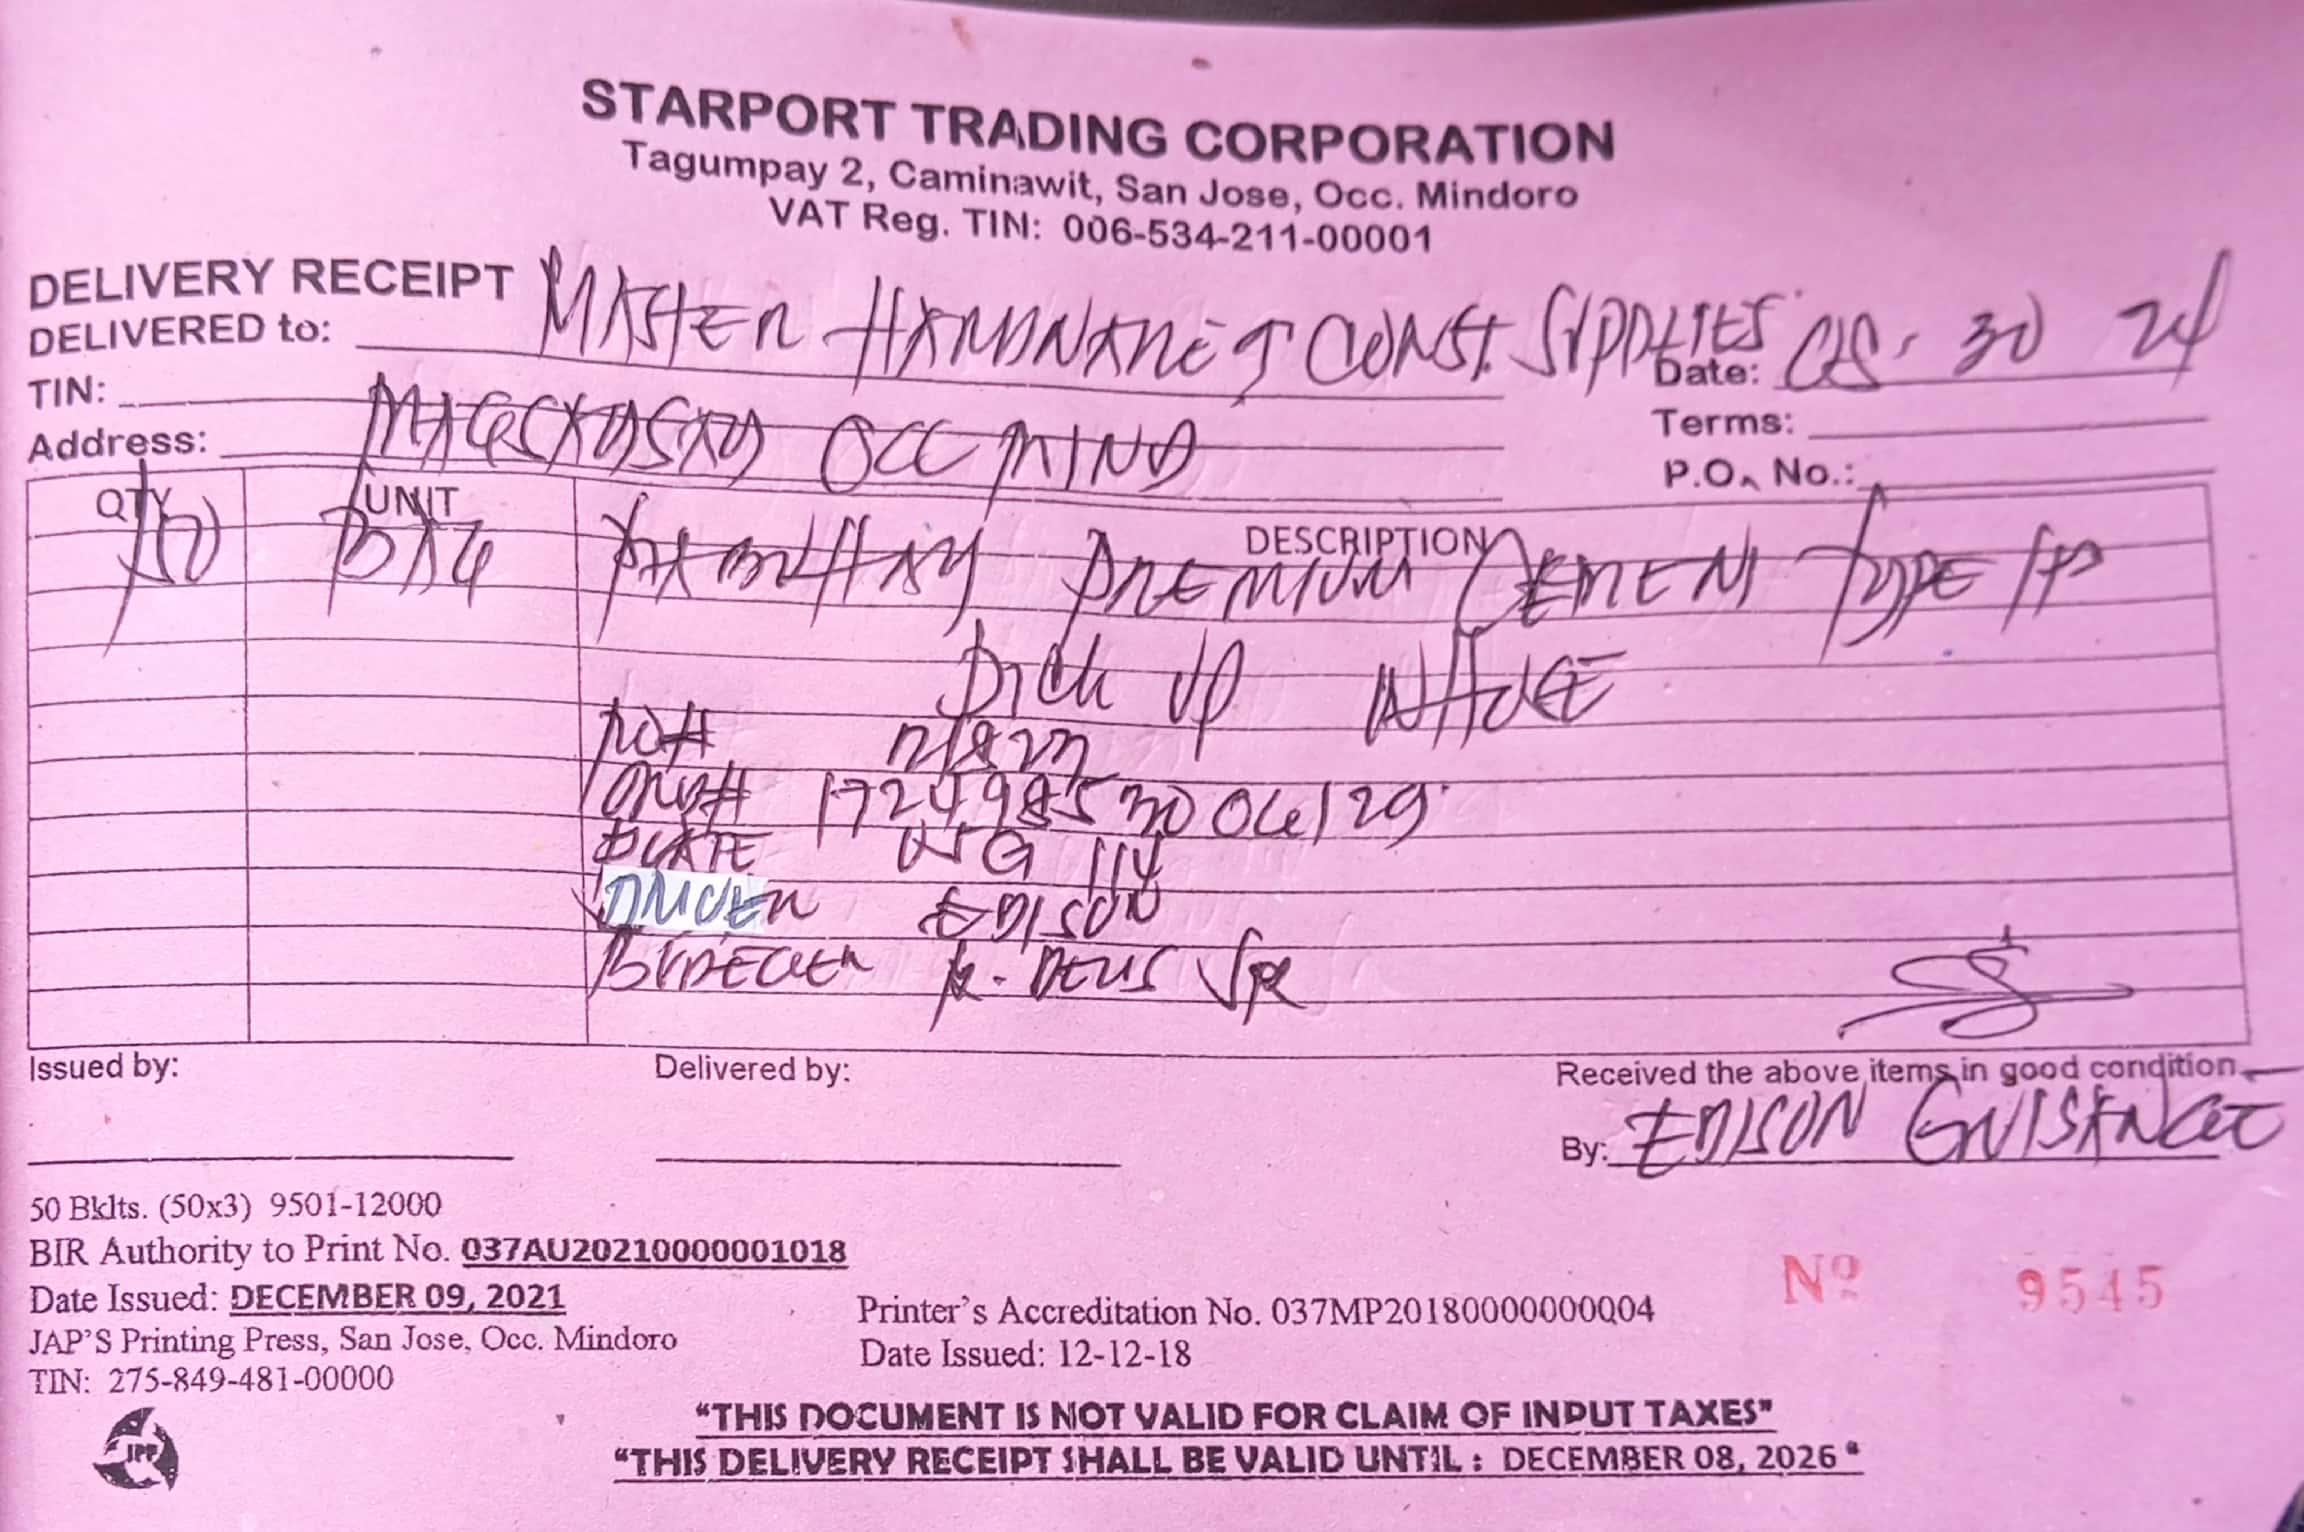 STARPORT TRADING CORPORATION
Tagumpay 2, Caminawit, San Jose, Occ. Mindoro
VAT Reg. TIN: 006-534-211-00001
DELIVERY RECEIPT
DELIVERED to: MASTER HARDWARE & CONST. SUPPLIES
Date: 08. 30 24
TIN:
Terms:
Address: MAGSAYSAY OCC MIND
P.O. No.:
QTY UNIT DESCRIPTION
BAG PREMIUM CEMENT TYPE 1P
Pick up
PO#
172498530 129
PLATE 114
DRIVER EDISON
Issued by:
Delivered by:
Received the above items in good condition
By: EDISON
50 Bklts. (50x3) 9501-12000
BIR Authority to Print No. 037AU20210000001018
Date Issued: DECEMBER 09, 2021
JAP'S Printing Press, San Jose, Occ. Mindoro
TIN: 275-849-481-00000
Printer's Accreditation No. 037MP20180000000004
Date Issued: 12-12-18
Nº 9545
JPP
"THIS DOCUMENT IS NOT VALID FOR CLAIM OF INPUT TAXES"
"THIS DELIVERY RECEIPT SHALL BE VALID UNTIL : DECEMBER 08, 2026 "